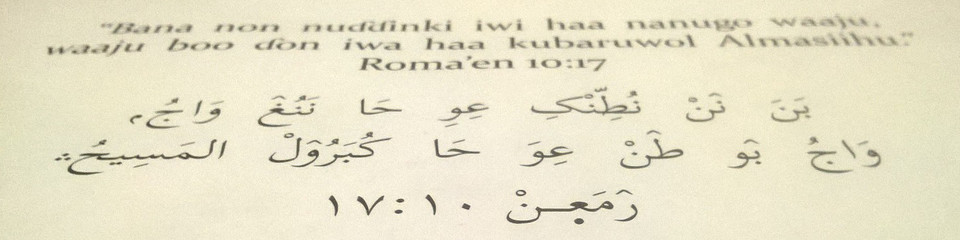 "Bana non nuɗɗinki iwi haa nanugo waaju,
waaju boo ɗon iwa haa kubaruwol Almasiihu."
Roma'en 10:17
بَنَ نَࣤنْ نُطِّنْکِ عِوِ حَا نَنُغَࣤ وَاجُ،
وَاجُ بَࣤو طَࣤنْ عِوَ حَا کُبَرُوَࣤلْ المَسِيحُ
رَࣤمَعٜنْ ١٠:١٧